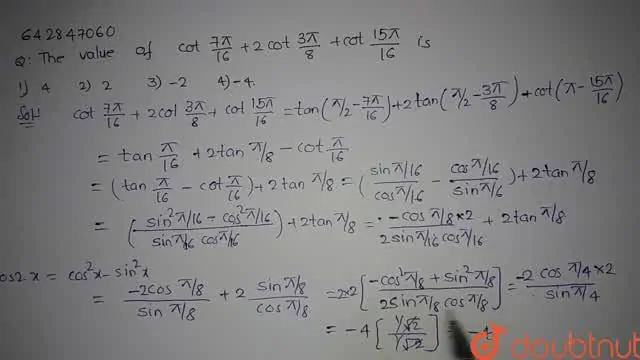 642847060
Q: The value of cot 7π/16 + 2 cot 3π/8 + cot 15π/16 is
1) 4 2) 2 3) -2 4) -4.
Sol: cot 7π/16 + 2cot 3π/8 + cot 15π/16 = tan(π/2 - 7π/16) + 2tan(π/2 - 3π/8) + cot(π - 15π/16)
= tan π/16 + 2tan π/8 - cot π/16
= (tan π/16 - cot π/16) + 2tan π/8 = (sin π/16 / cos π/16 - cos π/16 / sin π/6) + 2tan π/8
= (sin²π/16 - cos²π/16 / sin π/16 cos π/16) + 2tan π/8 = -cos π/8 * 2 / 2sin π/16 cos π/16 + 2tan π/8
os2x = cos²x - sin²x
= -2cos π/8 / sin π/8 + 2 sin π/8 / cos π/8 = 2x2[-cos²π/8 + sin²π/8 / 2sin π/8 cos π/8] = -2 cos π/4 * 2 / sin π/4
= -4 [1/√2 / 1/√2] -4
doubtnut